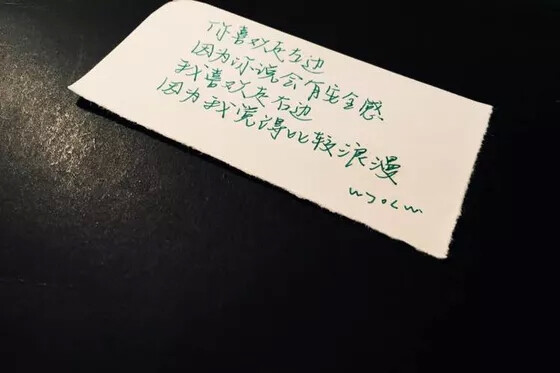 你喜欢走左边
因为你说会有安全感
我喜欢走右边
因为我觉得比较浪漫